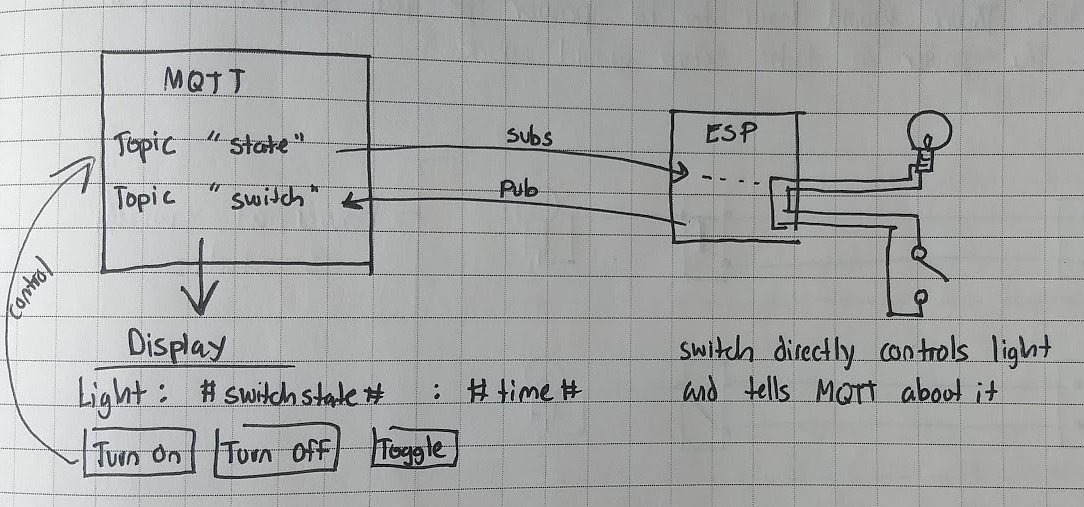 MQTT
Topic "state"
Topic "switch"
Subs
Pub
ESP
Control
Display
Light: #switch state# : #time#
Turn On
Turn Off
Toggle
switch directly controls light
and tells MQTT about it